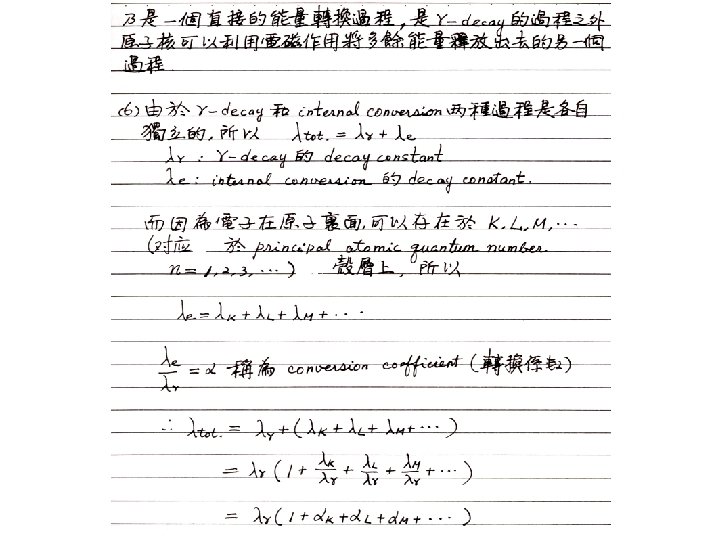 乃是一個直接的能量轉換過程，是γ-decay的過程之外
原子核可以利用電磁作用將多餘能量釋放出去的另一個
過程.
(6)由於γ-decay和internal conversion两種過程是各自
獨立的,所以 λtot. = λγ + λe
λγ : γ-decay的decay constant
λe : internal conversion 的 decay constant.
而因為電子在原子裏面,可以存在於 K, L, M, ⋯
(对应 於 principal atomic quantum number.
n = 1, 2, 3, ⋯) 殼層上, 所以
λe = λK + λL + λM + ⋯
λe/λγ = α 稱為 conversion coefficient (轉換係数)
∴ λtot. = λγ + (λK + λL + λM + ⋯)
= λγ (1 + λK/λγ + λL/λγ + λM/λγ + ⋯)
= λγ (1 + αK + αL + αM + ⋯)